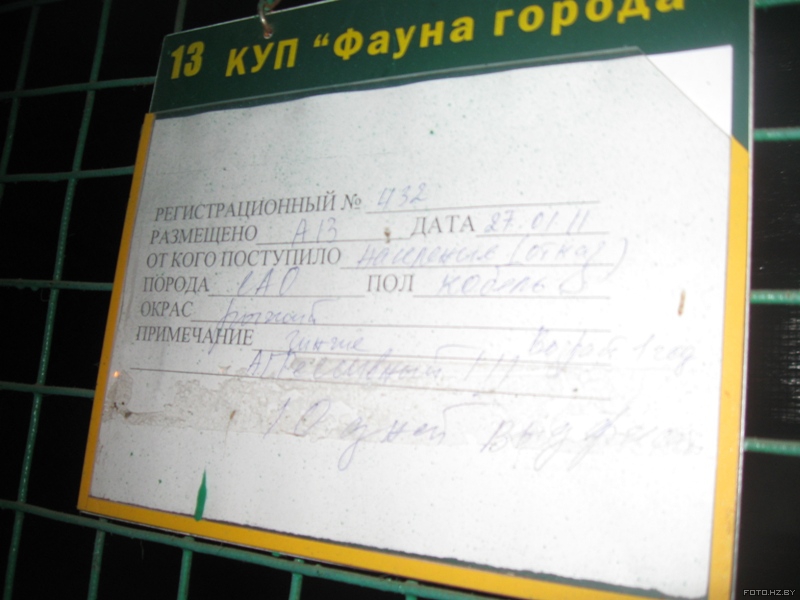 13 КУП "Фауна города
РЕГИСТРАЦИОННЫЙ № 432
РАЗМЕЩЕНО А13 ДАТА 27.01 11
ОТ КОГО ПОСТУПИЛО население (отказ)
ПОРОДА САО ПОЛ кобель
ОКРАС рыжий
ПРИМЕЧАНИЕ Возраст 1 год
Агрессивный !!!
10 дней
FOTO.HZ.BY